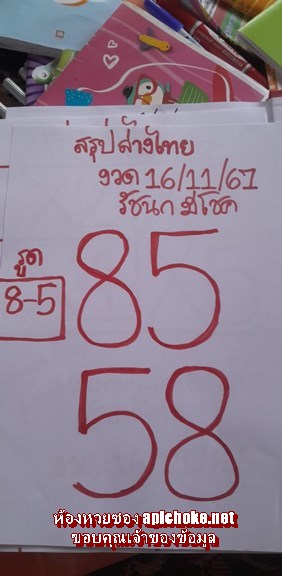 สรุปล่างไทย
งวด 16/11/61
รัชนก มีโชค
รูด
8-5
85
58
ห้องหวยซอง aplchoke.net
ขอบคุณเจ้าของข้อมูล